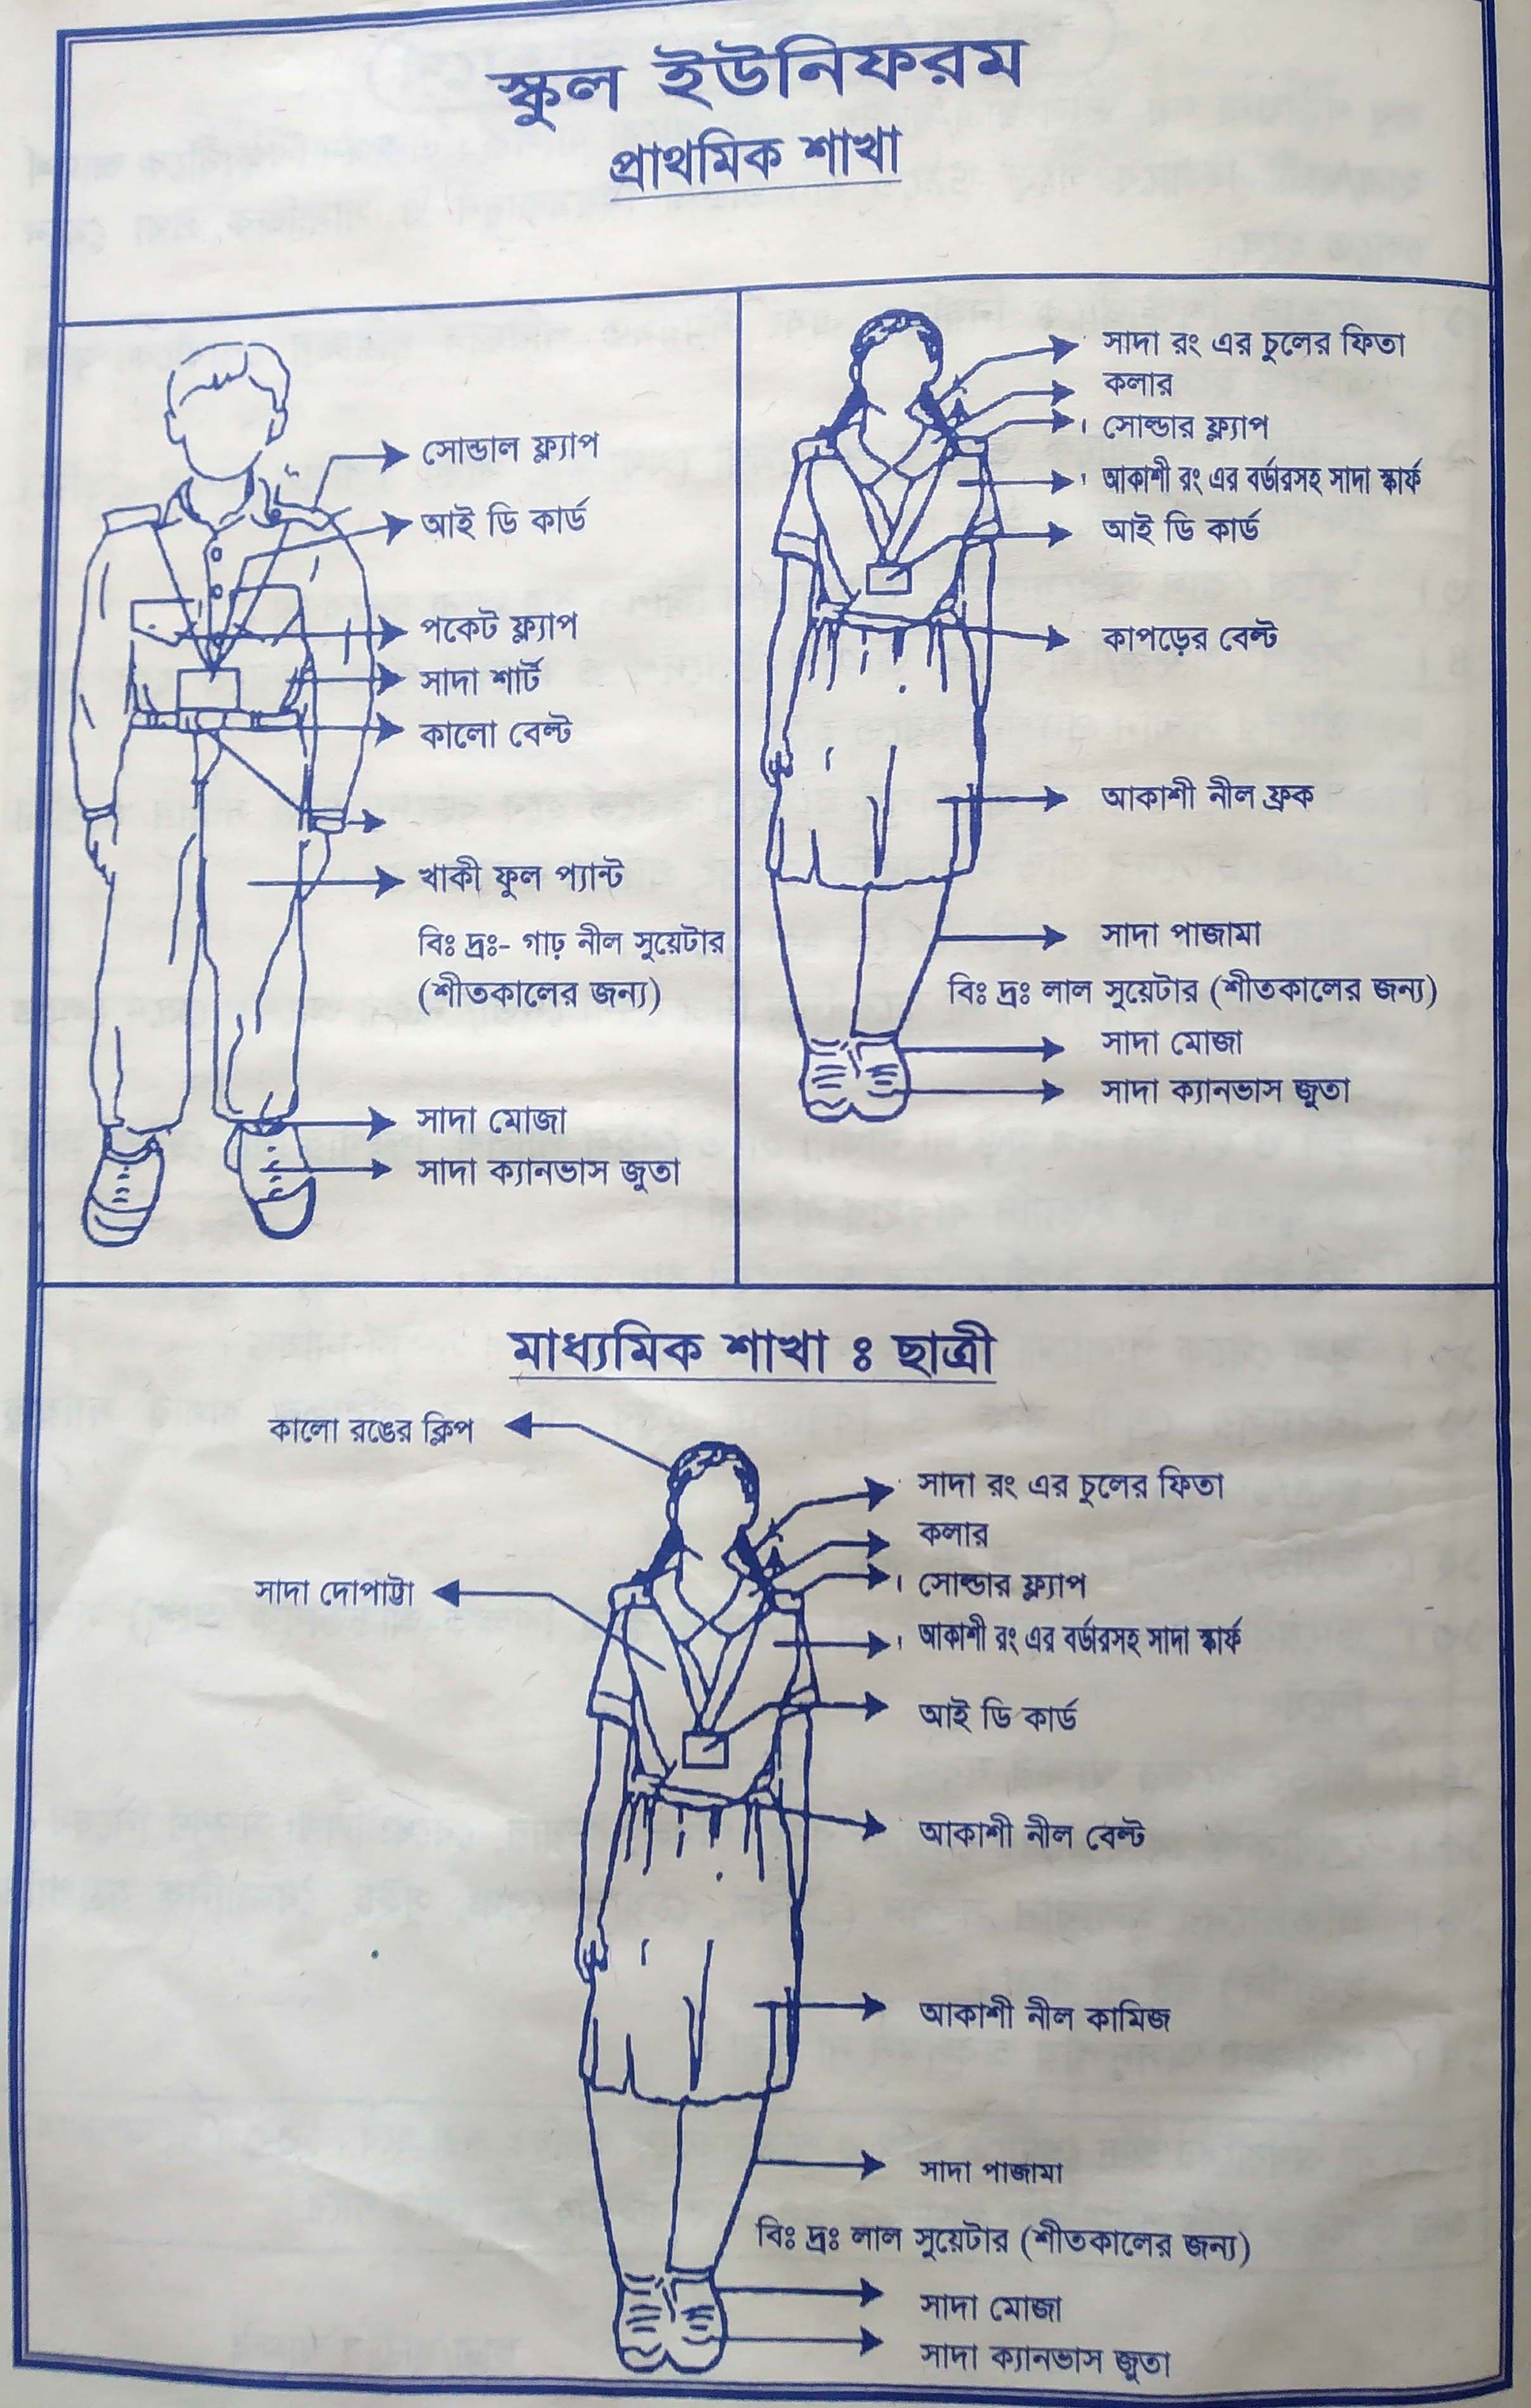 স্কুল ইউনিফরম
প্রাথমিক শাখা
সোল্ডাল ফ্ল্যাপ
আই ডি কার্ড
পকেট ফ্ল্যাপ
সাদা শার্ট
কালো বেল্ট
খাকী ফুল প্যান্ট
বিঃ দ্রঃ- গাঢ় নীল সুয়েটার
(শীতকালের জন্য)
সাদা মোজা
সাদা ক্যানভাস জুতা
সাদা রং এর চুলের ফিতা
কলার
সোল্ডার ফ্ল্যাপ
আকাশী রং এর বর্ডারসহ সাদা স্কার্ফ
আই ডি কার্ড
কাপড়ের বেল্ট
আকাশী নীল ফ্রক
সাদা পাজামা
বিঃ দ্রঃ লাল সুয়েটার (শীতকালের জন্য)
সাদা মোজা
সাদা ক্যানভাস জুতা
মাধ্যমিক শাখা ঃ ছাত্রী
কালো রঙের ক্লিপ
সাদা দোপাট্টা
সাদা রং এর চুলের ফিতা
কলার
সোল্ডার ফ্ল্যাপ
আকাশী রং এর বর্ডারসহ সাদা স্কার্ফ
আই ডি কার্ড
আকাশী নীল বেল্ট
আকাশী নীল কামিজ
সাদা পাজামা
বিঃ দ্রঃ লাল সুয়েটার (শীতকালের জন্য)
সাদা মোজা
সাদা ক্যানভাস জুতা